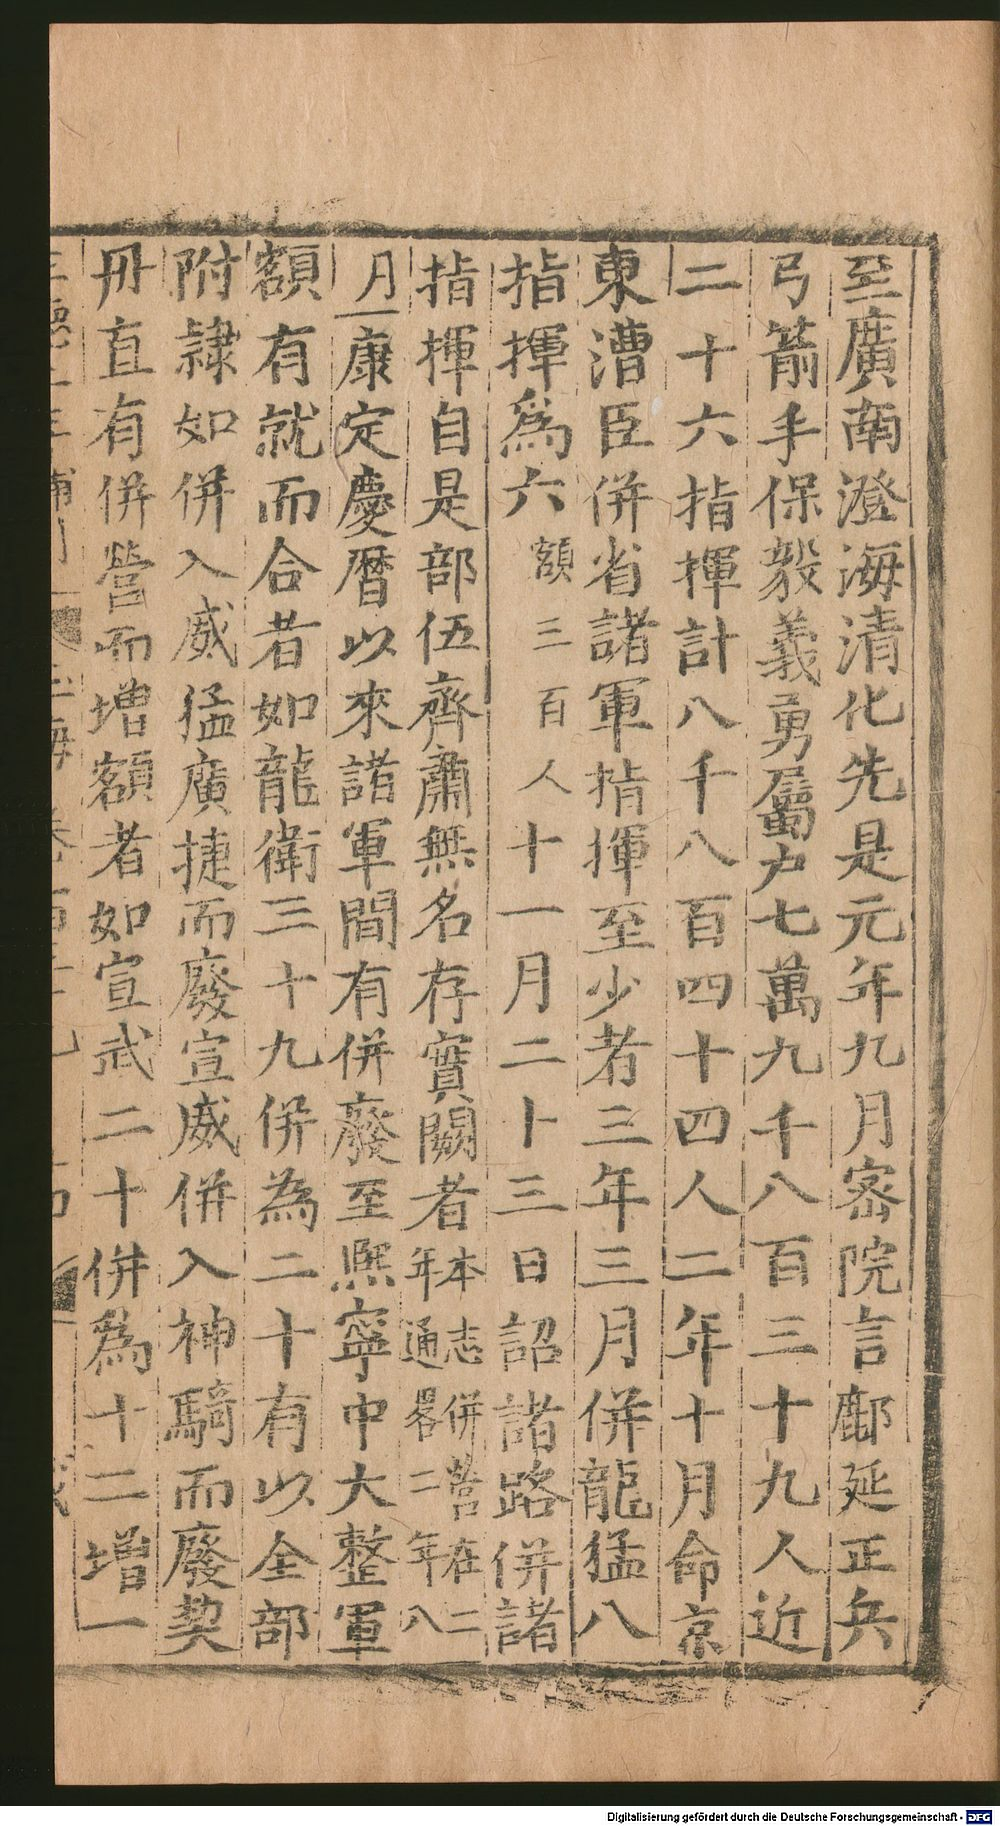 至廣南澄海清化先是元年九月密院言鄜延正兵
弓箭手保毅義勇屬户七萬九千八百三十九人近
二十六指揮計八千八百四十四人二年十月命京
東漕臣併省諸軍指揮至少者三年三月併龍猛八
指揮爲六額三百人十一月二十三日詔諸路併諸
指揮自是部伍齊肅無名存實闕者本志併營在二年通畧二年八
月康定慶曆以來諸軍間有併廢至熙寧中大整軍
額有就而合者如龍衛三十九併為二十有以全部
附隷如併入威猛廣捷而廢宣威併入神騎而廢契
丹直有併營而増額者如宣武二十併爲十二増一
Digitalisierung gefördert durch die Deutsche Forschungsgemeinschaft - DFG